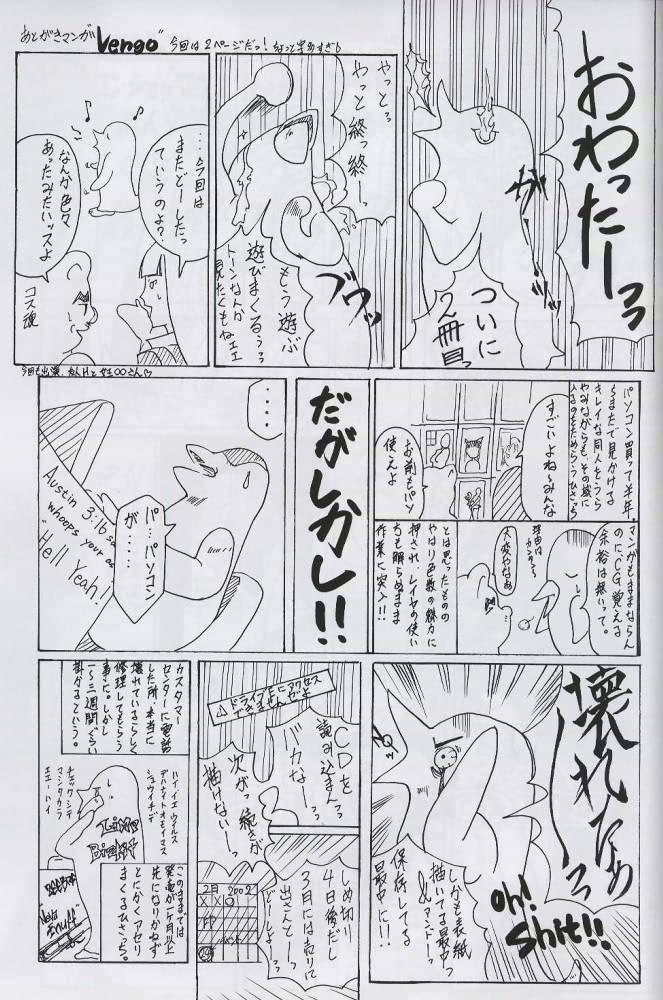 あとがきマンガ"Vengo"
今回は2ページだっ!
おわったーっっ
ついに
2冊目っ
やっとっ
やっと終っ終ーっ
ブワッ
もう遊ぶ
遊びまくるぅっっ
トーンなんか
見たくもねェェ
…今回は
またどーしたっ
ていうのよ?
なんか色々
あったみたいッスよ
コス魂
パソコン買って半年
すごいよね〜みんな
お前もパソ
使えよ
マンガもままならん
のにCG覚える
余裕は無いって。
理由は
カンタン〜
大変やなあ
とは思ったものの
やはり色数の魅力に
押され、レイヤの使い
方も解らぬまま
作業に突入!!
だがしかし!!
‥‥
パ…パソコン
が‥‥
Austin 3:16 sa
whoops your as
"Hell Yeah!
壊れたぁーっっ
Oh!
Shit!!
しかも表紙
描いてる最中っ
&アンドーっ
保存してる
最中に!!
CDを
読み込まんっ
バカなーっっ
次がっ続きが
描けないーっ
しめ切り
4日後だし
3月には売りに
出さんとーっ
どーしよーっ
2月 2002
カスタマー
センターに電話
した所、本当に
壊れているらしく
修理してもらう
事に。しかし
一〜三週間ぐらい
掛かるという。
ハイ、イエ ウイルス
デハナイトオモイマス
ショウイチデ
チェックシテ
マシタカラ
エエ…ハイ
このままでは
発売が1ヶ月以上
先になりかねず
とにかくアセリ
まくるひさっち。